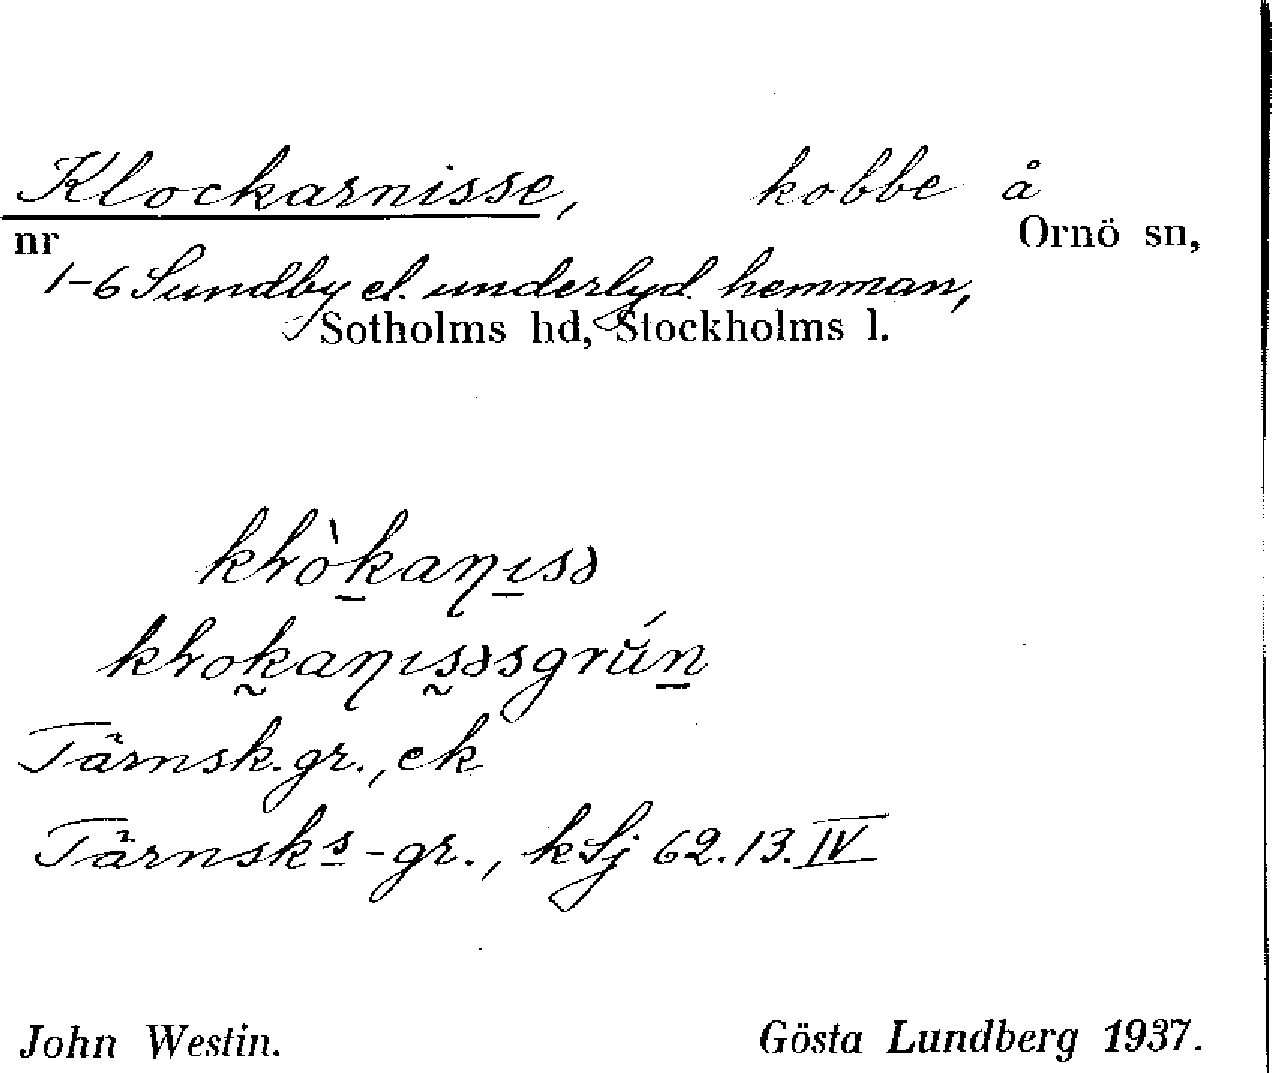 Klockarnisse, kobbe å
nr Ornö sn,
1-6 Sundby el. underlyd. hemman,
Sotholms hd, Stockholms l.
Tärnsk. gr., ek
Tärnsks-gr., kSj 62.13.IV
John Westin. Gösta Lundberg 1937.